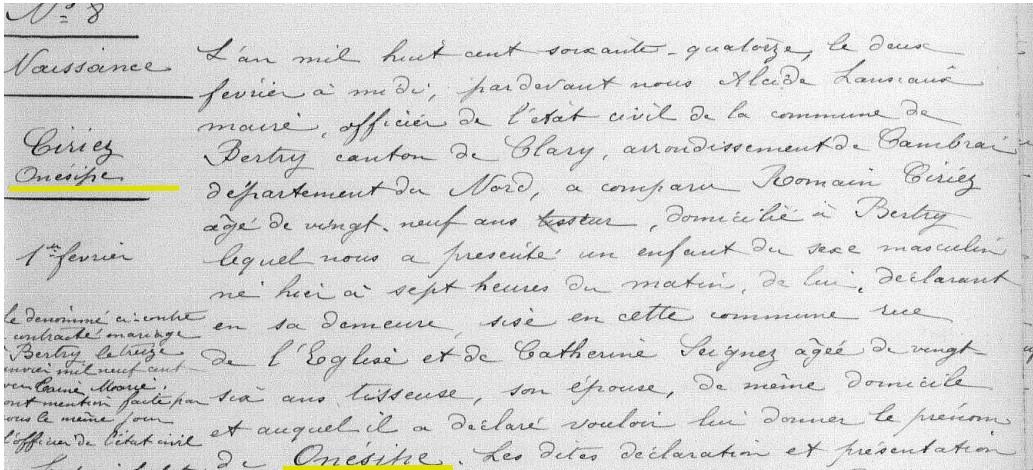 Nº 8
Naissance
Ciriez
Onésipe
1er février
le dénommé ci-contre
contracté mariage
Bertry le treize
mil neuf cent
Marie.
mention faite par
nous le même jour
l'officier de l'état civil
L'an mil huit cent soixante-quatorze, le deux
février à midi, pardevant nous Alcide Lanciaux
maire, officier de l'état civil de la commune de
Bertry canton de Clary, arrondissement de Cambrai
département du Nord, a comparu Romain Ciriez
âgé de vingt-neuf ans tisseur, domicilié à Bertry
lequel nous a présenté un enfant du sexe masculin
né hier à sept heures du matin, de lui, déclarant
en sa demeure, sise en cette commune rue
de l'Eglise et de Catherine Seignez âgée de vingt-
six ans tisseuse, son épouse, de même domicile
et auquel il a déclaré vouloir lui donner le prénom
de Onésipe. Les dites déclaration et présentation